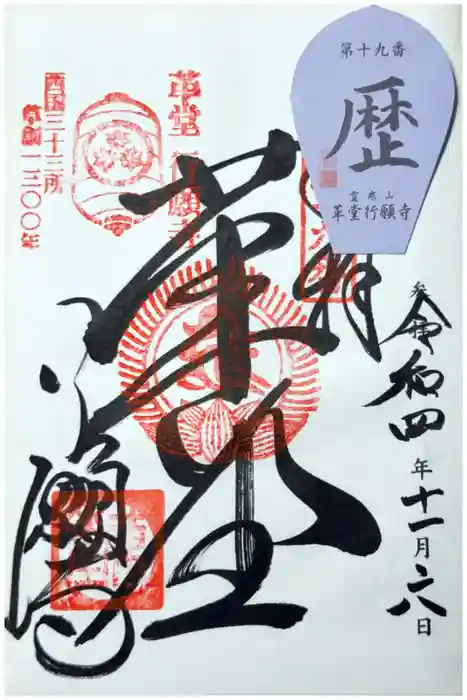 第十九番
歴
霊麀山
革堂行願寺
奉拝
令和四年十一月二八日
革堂
行願寺
革堂 行願寺
西国三十三所
草創一三〇〇年